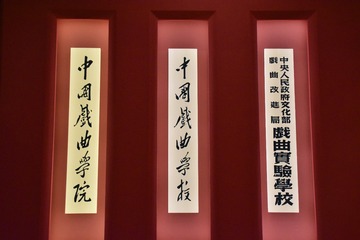 中国戏曲学院
中国戏曲学校
中央人民政府文化部
戲曲改進局
戲曲實驗學校